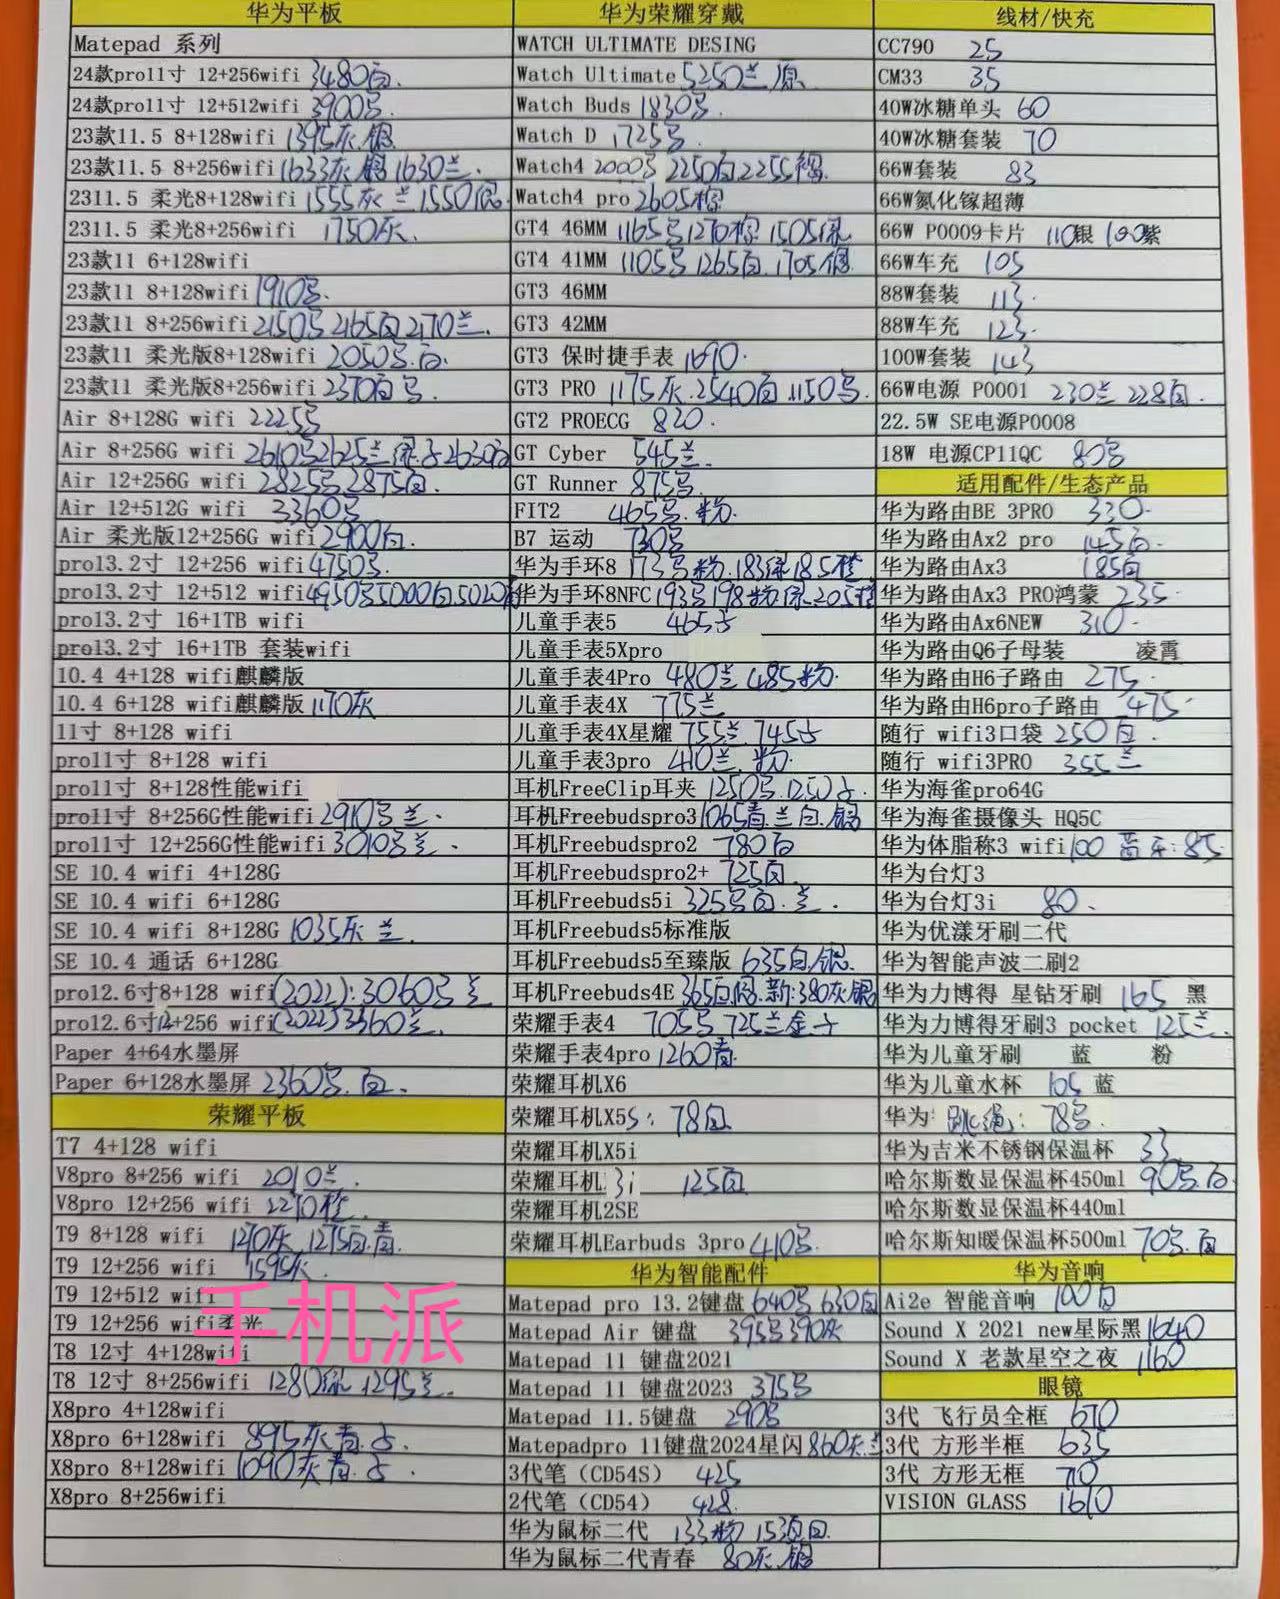 华为平板
Matepad 系列
24款pro11寸 12+256wifi 3480白.
24款pro11寸 12+512wifi 3900
23款11.5 8+128wifi 1395灰.银
23款11.5 8+256wifi 1633灰 银 1630兰.
2311.5 柔光8+128wifi 1555灰 兰 1550银
2311.5 柔光8+256wifi 1750灰.
23款11 6+128wifi
23款11 8+128wifi 1910
23款11 8+256wifi 2150 2165白 2170兰.
23款11 柔光版8+128wifi 2050 .白.
23款11 柔光版8+256wifi 2370白
Air 8+128G wifi 2225
Air 8+256G wifi 2610 2625兰 绿 2630白
Air 12+256G wifi 2825 2875白.
Air 12+512G wifi 3360
Air 柔光版12+256G wifi 2900白.
pro13.2寸 12+256 wifi 4750
pro13.2寸 12+512 wifi 4950 5000白 5020
pro13.2寸 16+1TB wifi
pro13.2寸 16+1TB 套装wifi
10.4 4+128 wifi麒麟版
10.4 6+128 wifi麒麟版 1170灰
11寸 8+128 wifi
pro11寸 8+128 wifi
pro11寸 8+128性能wifi
pro11寸 8+256G性能wifi 2910 兰.
pro11寸 12+256G性能wifi 3010 兰.
SE 10.4 wifi 4+128G
SE 10.4 wifi 6+128G
SE 10.4 wifi 8+128G 1035灰 兰.
SE 10.4 通话 6+128G
pro12.6寸8+128 wifi(2022):3060 兰
pro12.6寸12+256 wifi(2022)3360兰.
Paper 4+64水墨屏
Paper 6+128水墨屏 2360 .白.
荣耀平板
T7 4+128 wifi
V8pro 8+256 wifi 2010兰.
V8pro 12+256 wifi 2270橙.
T9 8+128 wifi 1270灰 1275白.青.
T9 12+256 wifi 1595灰.
T9 12+512 wifi
T9 12+256 wifi柔光
T8 12寸 4+128wifi
T8 12寸 8+256wifi 1280绿 1295兰.
X8pro 4+128wifi
X8pro 6+128wifi 895灰 青.
X8pro 8+128wifi 1090灰 青.
X8pro 8+256wifi
手机派
华为荣耀穿戴
WATCH ULTIMATE DESING
Watch Ultimate 5250兰.
Watch Buds 1830
Watch D 1725
Watch4 2000 2250白 2255棕.
Watch4 pro 2605棕
GT4 46MM 1165 1270棕 1505绿
GT4 41MM 1105 1265白.1705银.
GT3 46MM
GT3 42MM
GT3 保时捷手表 1690.
GT3 PRO 1175灰.2540白.1150
GT2 PROECG 820.
GT Cyber 545兰.
GT Runner 875
FIT2 465 .粉.
B7 运动 730
华为手环8 173 粉.183绿 185橙
华为手环8NFC 193 198粉 绿.205橙
儿童手表5 465
儿童手表5Xpro
儿童手表4Pro 480兰 485粉.
儿童手表4X 775兰
儿童手表4X星耀 755兰 745
儿童手表3pro 410兰.粉.
耳机FreeClip耳夹 1250 .1250
耳机Freebudspro3 1065青.兰白.银
耳机Freebudspro2 780白
耳机Freebudspro2+ 725白
耳机Freebuds5i 325 白.兰.
耳机Freebuds5标准版
耳机Freebuds5至臻版 635白.银.
耳机Freebuds4E 365白银.新:380灰银
荣耀手表4 705 725兰金
荣耀手表4pro 1260青.
荣耀耳机X6
荣耀耳机X5S: 78白
荣耀耳机X5i
荣耀耳机3i 125白
荣耀耳机2SE
荣耀耳机Earbuds 3pro 410
华为智能配件
Matepad pro 13.2键盘 640 630白
Matepad Air 键盘 395 390灰
Matepad 11 键盘2021
Matepad 11 键盘2023 375
Matepad 11.5键盘 290
Matepadpro 11键盘2024星闪 860灰兰
3代笔（CD54S） 425
2代笔（CD54） 428.
华为鼠标二代 133粉 153 白.
华为鼠标二代青春 80灰.银
线材/快充
CC790 25
CM33 35
40W冰糖单头 60
40W冰糖套装 70
66W套装 83
66W氮化镓超薄
66W P0009卡片 110银 100紫
66W车充 105
88W套装 113.
88W车充 123.
100W套装 143
66W电源 P0001 230兰 228白.
22.5W SE电源P0008
18W 电源CP11QC 80
适用配件/生态产品
华为路由BE 3PRO 330.
华为路由Ax2 pro 145白.
华为路由Ax3 185白
华为路由Ax3 PRO鸿蒙 235.
华为路由Ax6NEW 310.
华为路由Q6子母装 凌霄
华为路由H6子路由 275.
华为路由H6pro子路由 475.
随行 wifi3口袋 250白.
随行 wifi3PRO 355兰
华为海雀pro64G
华为海雀摄像头 HQ5C
华为体脂称3 wifi100 蓝牙:85.
华为台灯3
华为台灯3i 80.
华为优漾牙刷二代
华为智能声波二刷2
华为力博得 星钻牙刷 165 黑
华为力博得牙刷3 pocket 125兰.
华为儿童牙刷 蓝 粉
华为儿童水杯 105 蓝
华为:跳绳: 78
华为吉米不锈钢保温杯 33
哈尔斯数显保温杯450ml 90 白
哈尔斯数显保温杯440ml
哈尔斯知暖保温杯500ml 70 .白
华为音响
Ai2e 智能音响 100白
Sound X 2021 new星际黑 1640
Sound X 老款星空之夜 1160
眼镜
3代 飞行员全框 670
3代 方形半框 635
3代 方形无框 710
VISION GLASS 1610